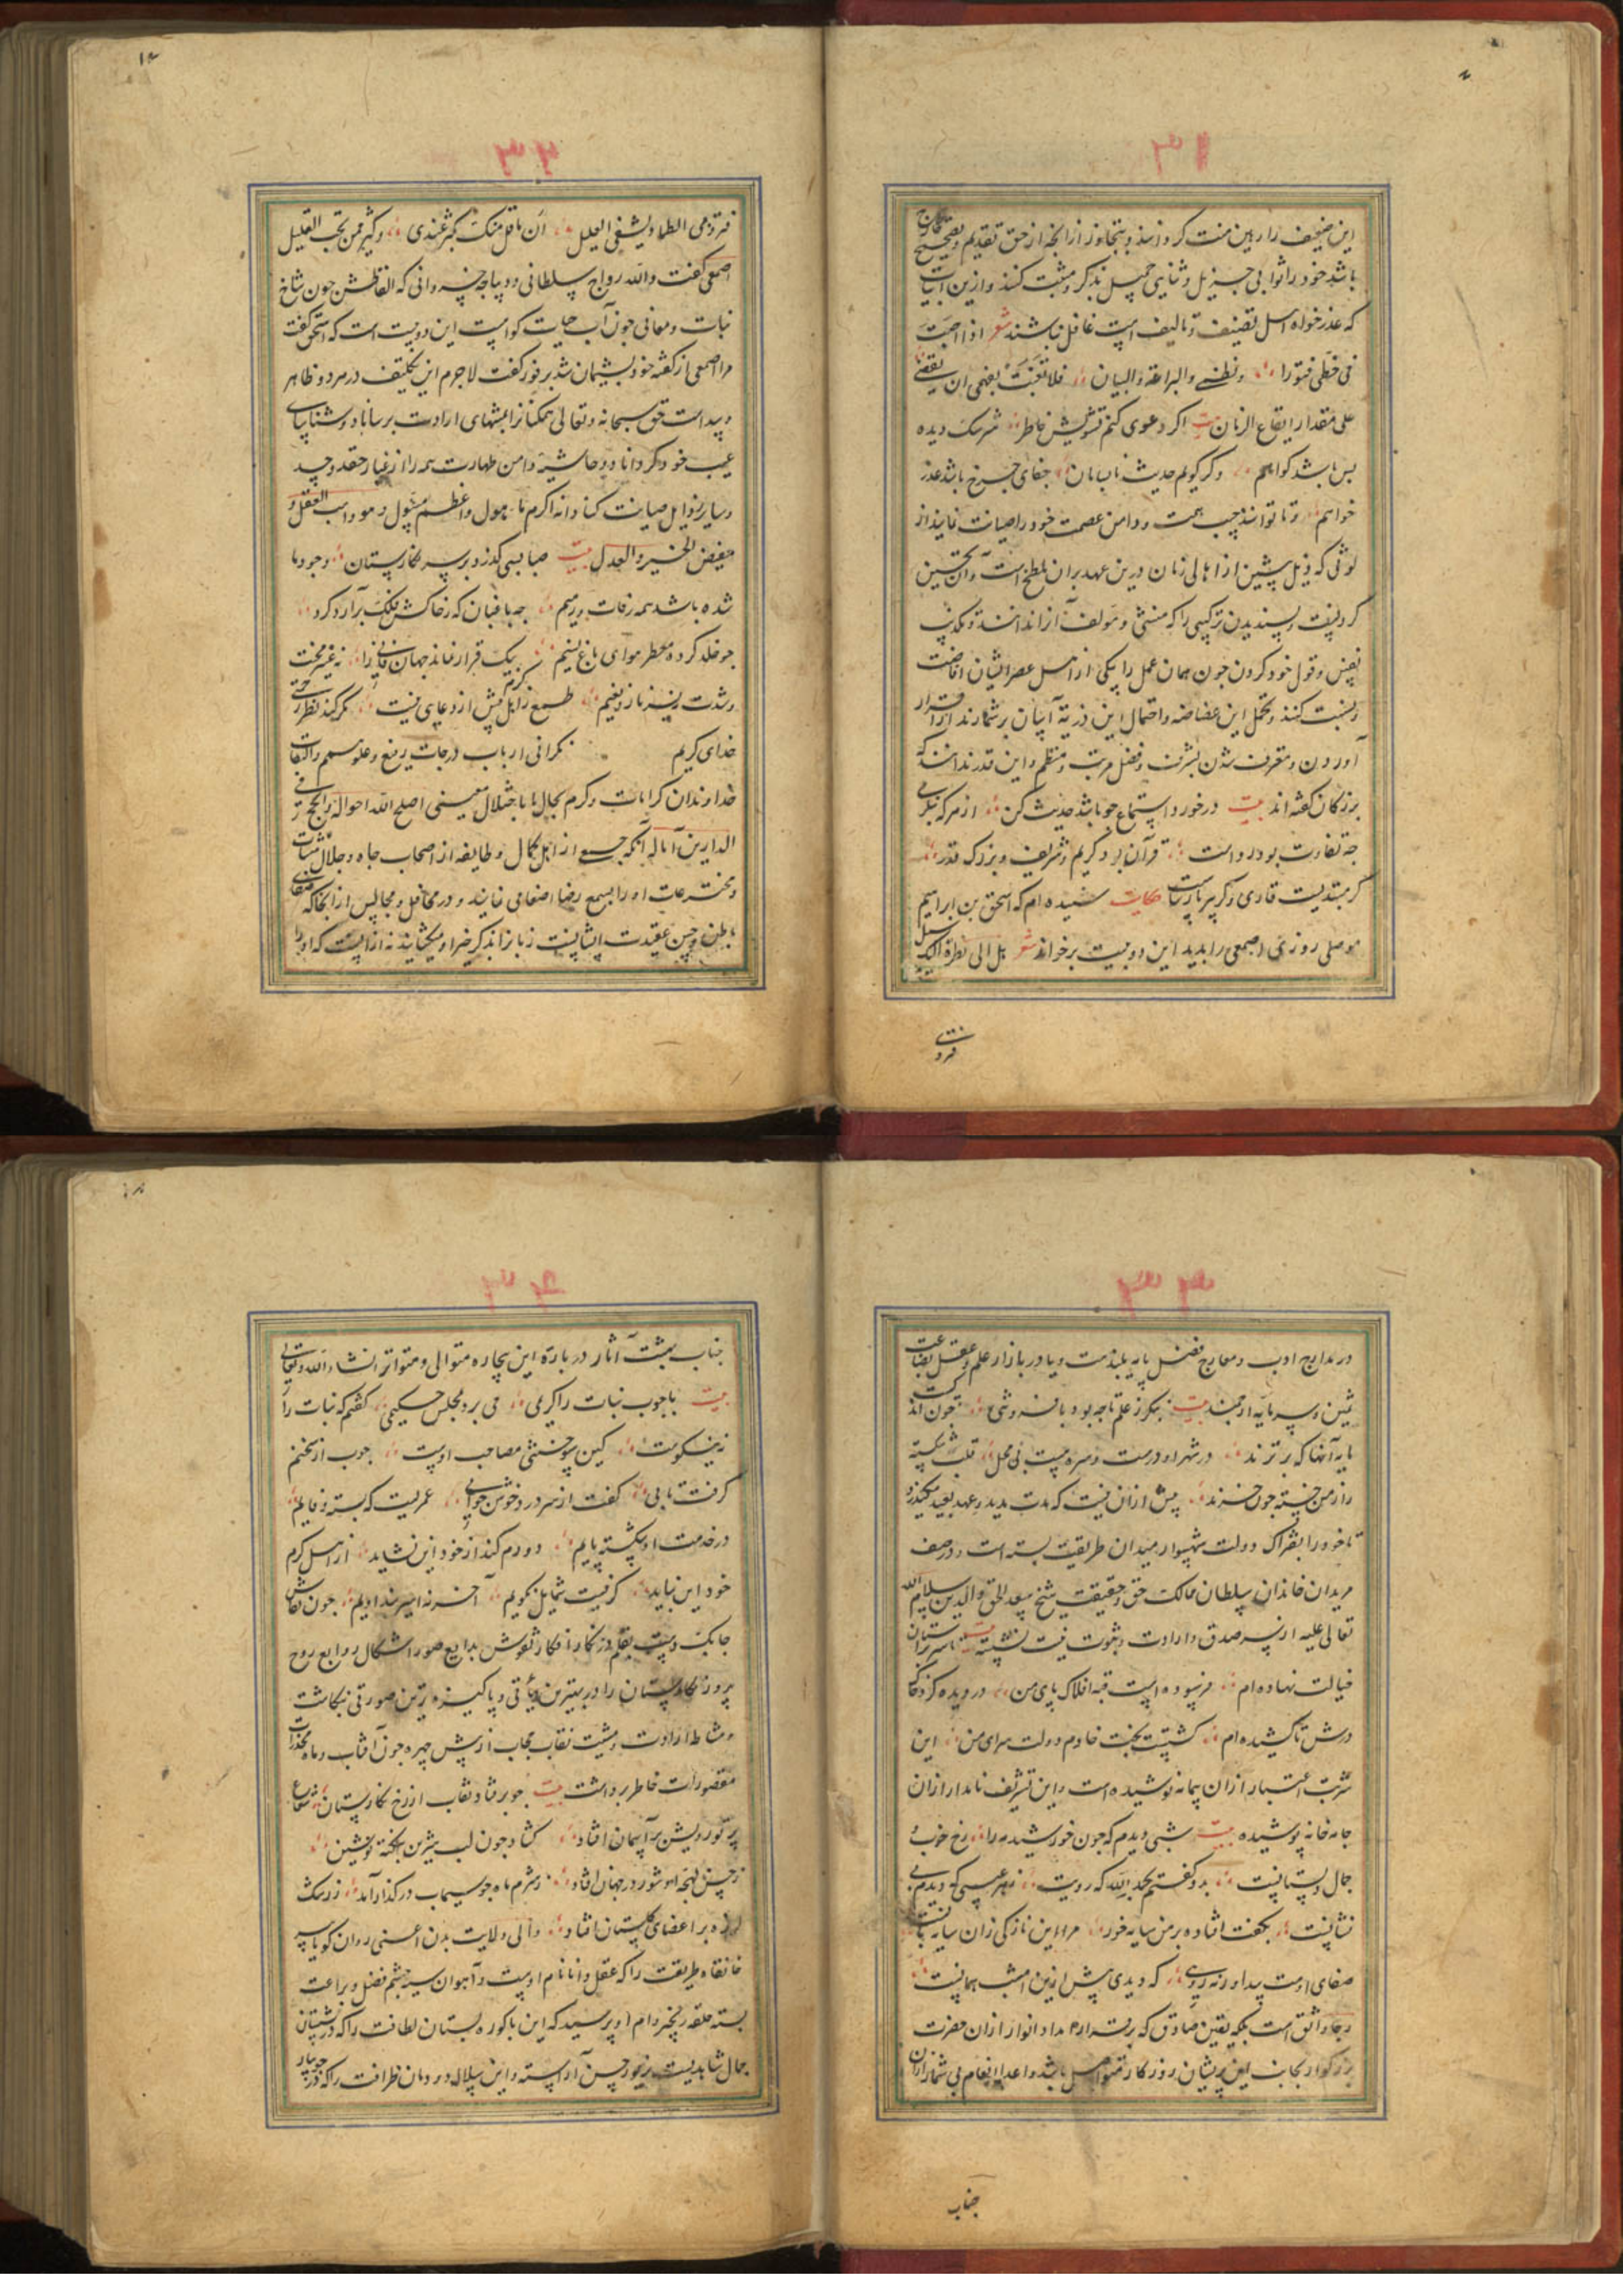 ۳۱
این ضعیف را رهین منت گردانند و بتجاوز از آنچه از حق تقدیم و تصحیح
باشد خود را ثوابی جزیل و ثنایی جمیل بذکر و مثبت کنند و ازین ابیات
که عذرخواه اهل تصنیف و تالیف است غافل نباشند شعر اذا احسَت
فی خطی فتورا و والبراعة والبیان فلا بفهمی ان
علی مقدار ایقاع الزمان بیت اگر دعوی کنم تشویش خاطر سرشک دیده
بس باشد گواهم وگر گویم حدیث جفای چرخ باشد عذر
خواهم و تا توانند جیب همت و دامن عصمت خود را صیانت نمایند از
لوثی که ذیل پیشین از اهالی زمان درین عهد بران ملطخ است و آن تحسین
کردنست و پسندیدن ترکیبی را که منشی و مولف آنرا ندانند و تکذیب
نفس و قول خود کردن چون همان عمل را بیکی از اهل عصر ایشان اضافت
و نسبت کنند و تحمل این غضاضه و احتمال این آسان برشمارند از اقرار
آوردن و معترف شدن بشرف و فضل مرتب و منظم و این قدر ندانند که
بزرگان گفته اند بیت درخورد استماع چو باشد حدیث کن از هر که
چه تفاوت بود رواست قرآن بود کریم و شریف و بزرگ قدر
گر مبتدیست قاری وگر پیر پارسا حکایت شنیده ام که اسحق بن ابراهیم
موصلی روزی اصمعی را بدید این دو بیت برخواند شعر هل الی نظرة الیک سبیل
فیروی
۳۲
فیروی الظما ویشفی الغلیل ان ما قل منک یکثر عندی وکثیر ممن تحب القلیل
اصمعی گفت والله رواج سلطانی و دیباجه خسروانی که الفاظش چون شاخ
نبات و معانی چون آب حیات کراست این دو بیت است که اسحق گفت
مرا اصمعی از گفته خود پشیمان شد بر فور گفت لاجرم این تکلیف در مرد و ظاهر
و پیداست حق سبحانه و تعالی همکنانرا بمنتهای ارادت برساناد و شناسای
عیب خود گرداناد و حاشیه دامن طهارت همه را از غبار حقد و حسد
و سایر رذایل صیانت کناد انه اکرم مامول واعظم مسؤل وهو واهب العقل و
مفیض الخیر والعدل بیت صبا بسی گذرد بر سر نگارستان وجود ما
شده باشد همه رفات و رمیم چه باغبان که ز خاکش فلک برآرد گرد
چو خلد کرده معطر هوای باغ نسیم بیک قرار نماند جهان فانی را نه غیر محنت
و شدت نه نیز ناز و نعیم طمع ز اهل کرم بیش از دعایی نیست مگر کند نظر رحمتی
خدای کریم نگرانی ارباب درجات رفیع و علو همم و التفات
خداوندان کرامات و کرم بحال معینی اصلح الله احواله وانجح فی
الدارین آماله آنکه جمعی از اهل کمال و طایفه از اصحاب جاه و جلال منشآت
و مخترعات او را بسمع رضا اصغا می نمایند و در محافل و مجالس از آنجا که صفای
باطن و حسن عقیدت ایشانست زبانرا بذکر خیر او میگشایند نه از آنست که او را
۳۳
در مدارج ادب و معارج فضل پایه بلندست و یا در بازار علم و عقل بضاعت
ثمین و سرمایه ارجمند بیت بنگر ز علم تا چه بود چون اند
پایه آنها که برترند در شهر او درست و سره نیست بی محل قلب شکسته
را ز من خسته چون خرند بیش از آن نیست که مدت مدید و عهد بعید میگذرد
تا خود را بفتراک دولت شهسوار میدان طریقت بسته است و در صف
مریدان خاندان سلطان ممالک حق و حقیقت شیخ سعد الحق والدین سلام الله
تعالی علیه از سر صدق و ارادت و ثبوت نیت نشسته بیت تا سر بر آستان
خیالت نهاده ام فرسوده است قبه افلاک پای من در دیده گرد خاک
درش تا کشیده ام گشتست بخت خادم دولت سرای من این
شربت اعتبار از آن پیمانه نوشیده است و این تشریف نامدار از آن
جامه خانه پوشیده بیت شبی دیدم که چون خورشید مه را رخ خوب و
جمال دلستانیست بدو گفتم بحمد الله که رویت ز هر عیبی که دیدم بی
نشانیست بگفت افتاده بر من سایه خور مرا این نازکی زان سایه بانیست
صفای اوست پیدا ورنه رویی که دیدی پیش ازین امشب همانیست
رجا واثق است بلکه یقین صادق که برقرار امداد انوار از آن حضرت
بزرگوار بجانب این پریشان روزگار متواصل باشد و اعداد انعام بی شمار از آن
جناب
۳۴
جناب بهشت آثار در باره این بیچاره متوالی و متواتر انشاء الله وتعالی
بیت با چوب نبات را کریمی می برد بمجلس حکیمی گفتم که نبات را
نه نیکوست کین سوختنی مصاحب اوست چوب از سخنم
گرفت تابی گفت از سر درد خوش جوابی عمریست که بسته وفایم
در خدمت او شکسته پایم دورم کند از خود این نشاید از اهل کرم
خود این نیاید گر نیست شمایل نکویم آخر نه اسیر بند اویم چون نقاش
چابک دست بقلم زرنگار افکار نقوش بدایع صور اشکال روایع روح
پرور نگارستان را در بهترین هیأتی و پاکیزه ترین صورتی نگاشت
و مشاطه ارادت و مشیت نقاب حجاب از پیش چهره چون آفتاب و ماه مخدرات
مقصورات خاطر برداشت بیت چو برفتاد نقاب از رخ نگارستان شعاع
پرتو رویش بر آسمان افتاد گشاد چون لب شیرین بنکته نوشین
ز حسن لهجه او شور در جهان افتاد ز شرم ماه چو سیماب در گداز آمد ز رشک
لرزه بر اعضای گلستان افتاد والی ولایت بدن اعنی روان گویا پیر
خانقاه طریقت را که عقل دانا نام اوست و آهوان سیه چشم فضل و براعت
بسته حلقه زنجیر دام او پرسید که این باکوره بستان لطافت را که در شبستان
جمال شاهدیست بزیور حسن آراسته و این سلاله دودمان ظرافت را که در جویبار